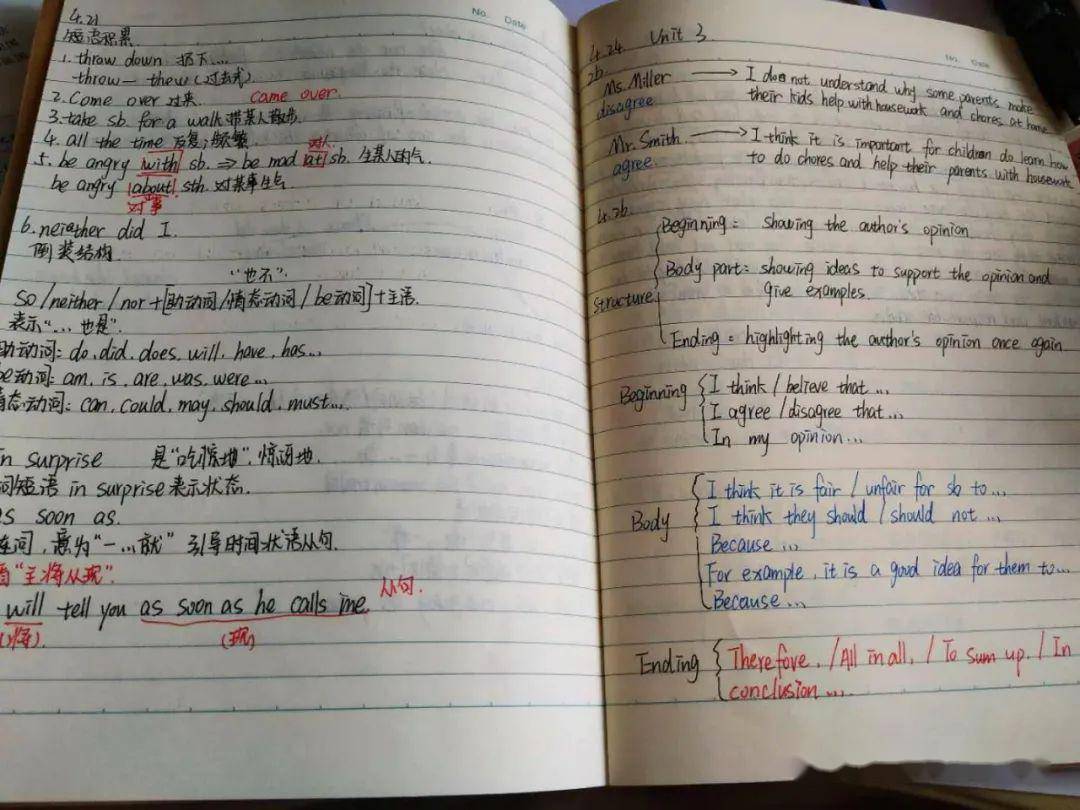 No. Date
4.21
短语积累
1. throw down 扔下...
throw — thew (过去式)
2. Come over 过来 came over.
3. take sb. for a walk 带某人散步
4. all the time 反复;频繁 对人
5. be angry with sb. ⇒ be mad at sb. 生某人的气
be angry about sth. 对某事生气
对事
6. neither did I.
倒装结构
"也不"
so/neither/nor+[助动词/情态动词/be动词]+主语.
表示"... 也是".
助动词: do, did, does, will, have, has...
be动词: am, is, are, was, were...
情态动词: can, could, may, should, must...
in surprise 是"吃惊地", 惊讶地.
词短语 in surprise 表示状态.
as soon as.
连词, 意为"一...就" 引导时间状语从句.
"主将从现".
从句.
will tell you as soon as he calls me.
(将) (现)
No. Date
4.24 Unit 3
2b
Ms. Miller → I does not understand why some parents make
disagree their kids help with housework and chores at home.
Mr. Smith → I think it is important for children do learn how
agree. to do chores and help their parents with housework
4.26
Beginning: showing the author's opinion
Body part: showing ideas to support the opinion and
structure give examples.
Ending: highlighting the author's opinion once again
Beginning I think / believe that...
I agree / disagree that...
In my opinion...
I think it is fair / unfair for sb to...
Body I think they should / should not ...
Because...
For example, it is a good idea for them to...
Because...
Ending Therefore, / All in all, / To sum up, / In
conclusion...